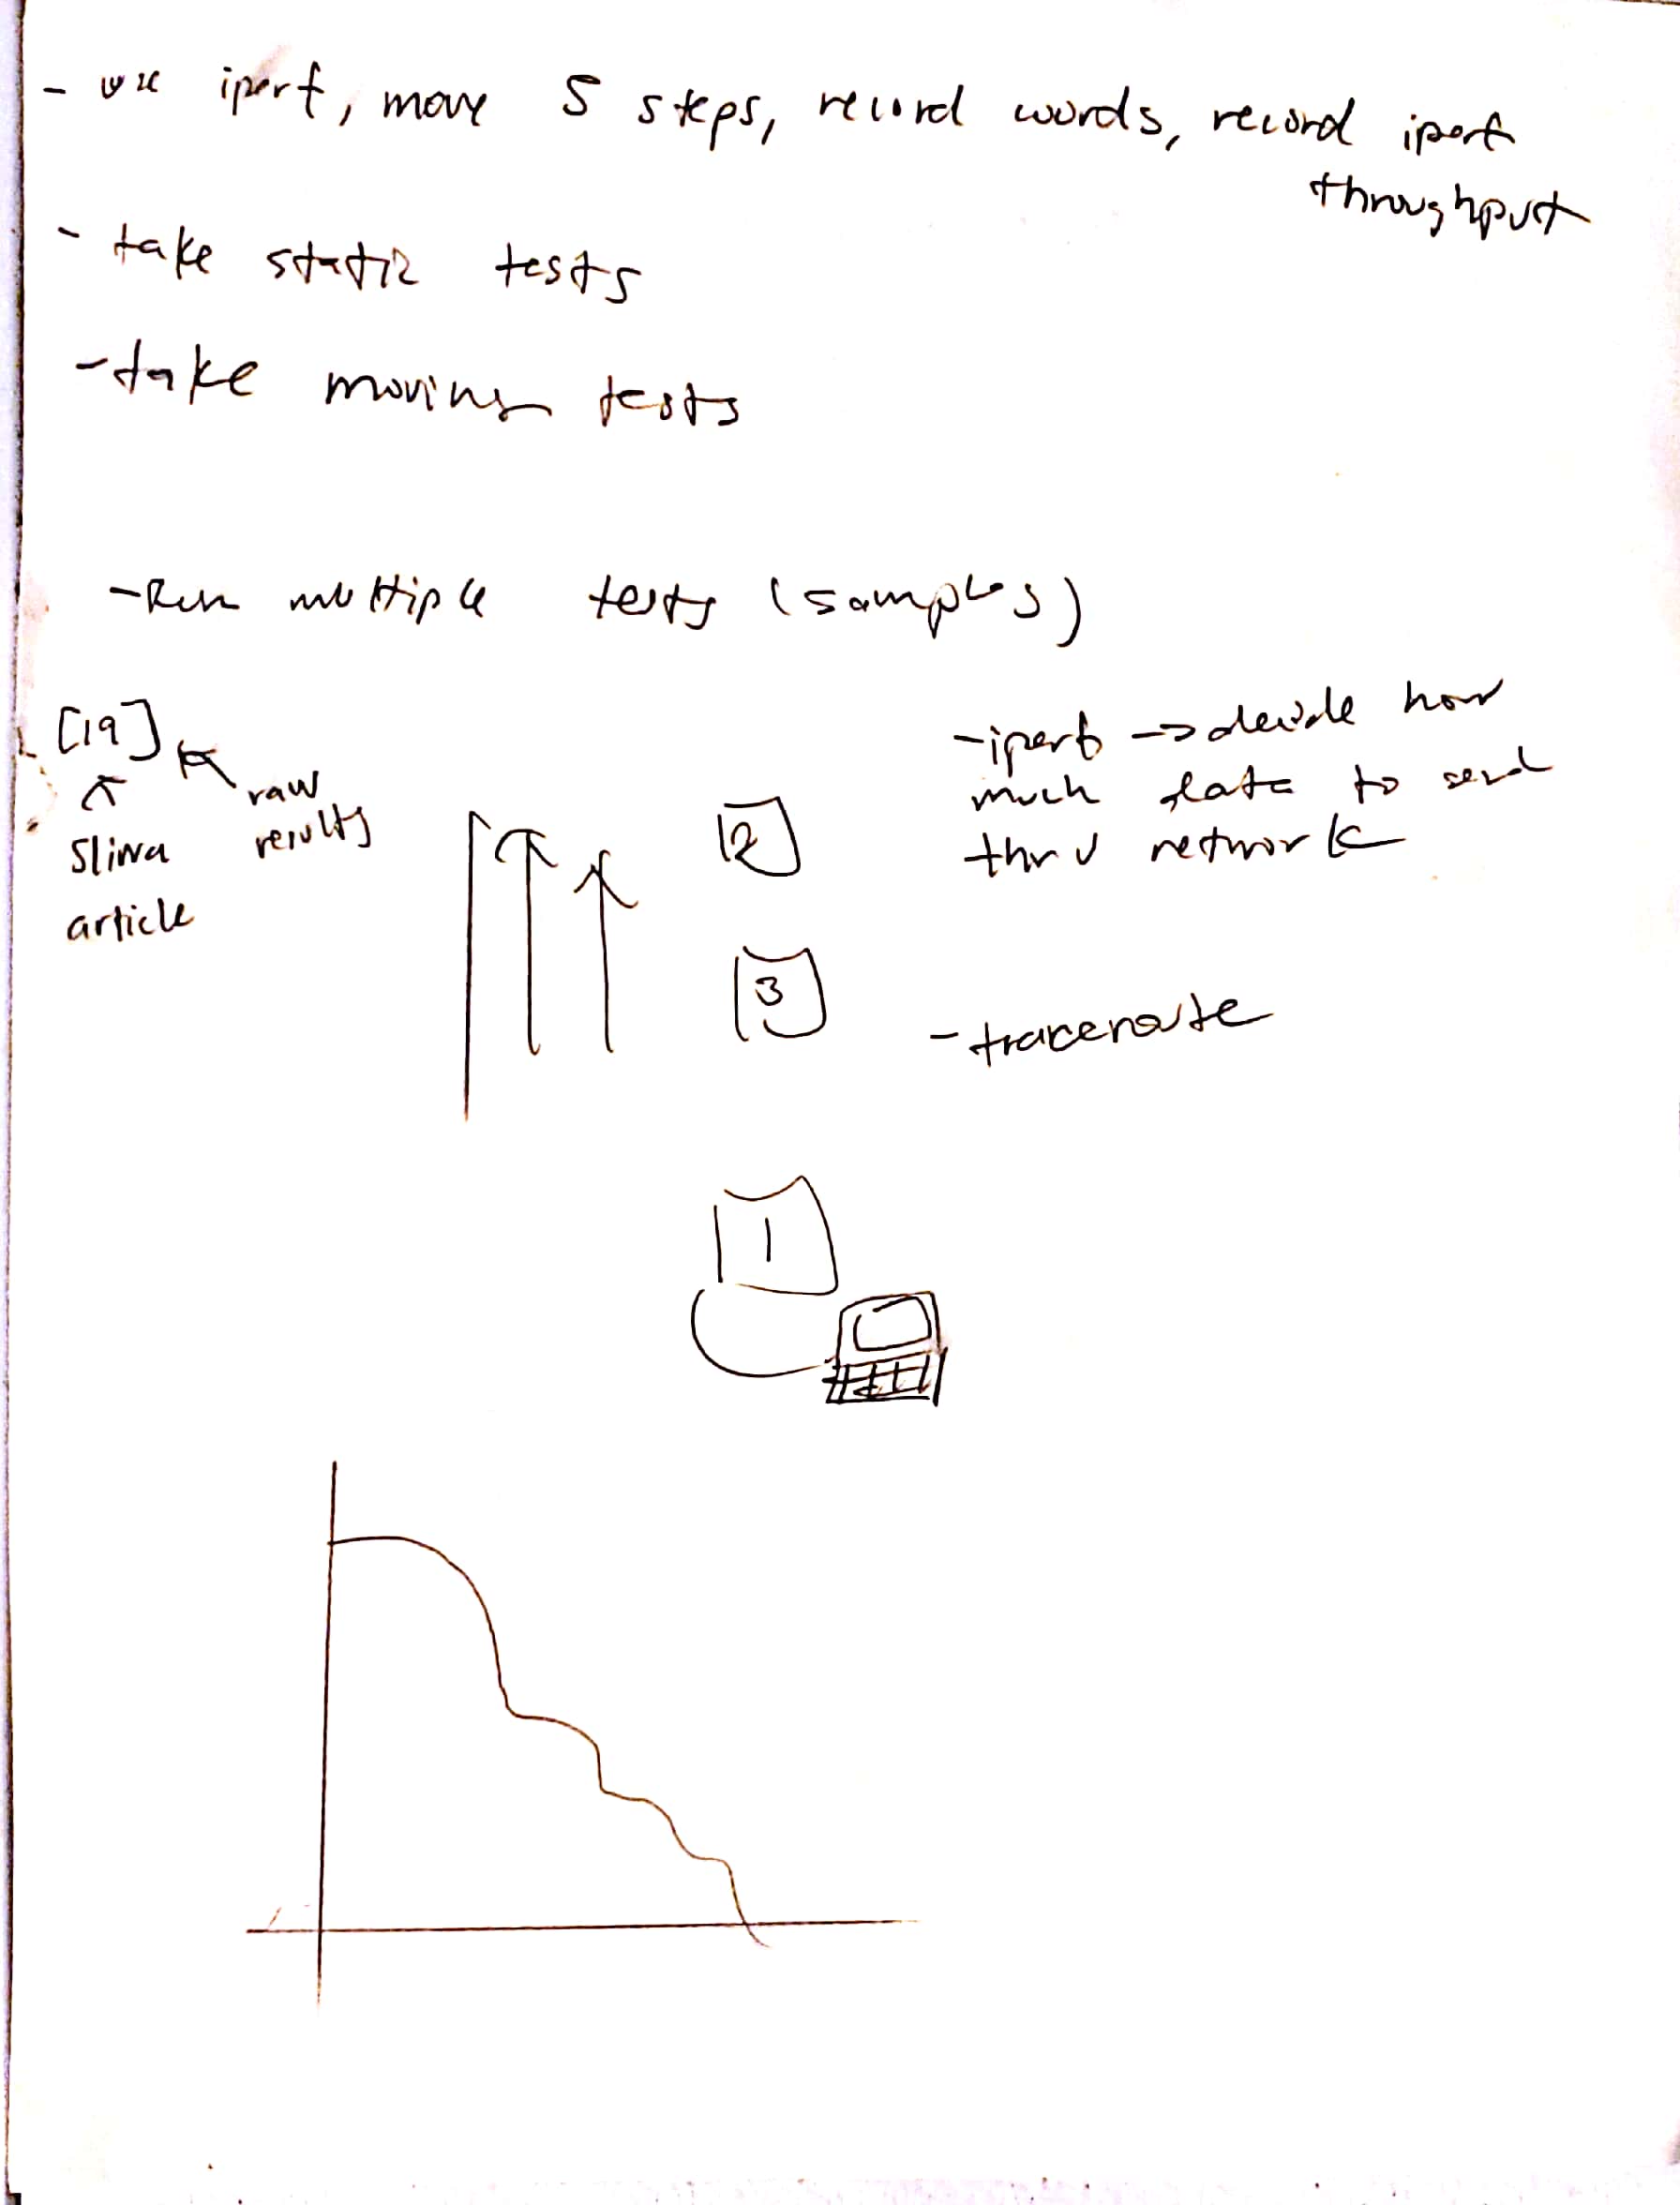 - use iperf, move 5 steps, record words, record iperf
throughput
- take static tests
- take moving tests
- Run multiple tests (samples)
[19]
raw
results
Sliwa
article
2
3
1
- iperf → decide how
much data to send
thru network
- traceroute